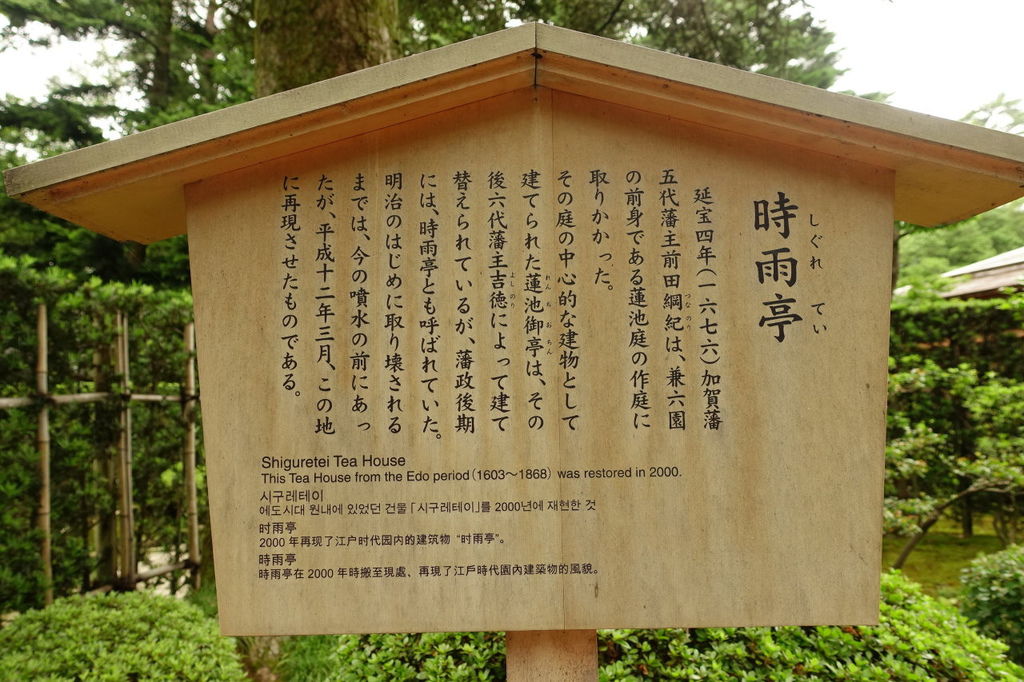 時雨亭
しぐれ てい
延宝四年(一六七六)加賀藩
五代藩主前田綱紀は、兼六園
つなのり
の前身である蓮池庭の作庭に
取りかかった。
その庭の中心的な建物として
建てられた蓮池御亭は、その
れんちおちん
後六代藩主吉徳によって建て
よしのり
替えられているが、藩政後期
には、時雨亭とも呼ばれていた。
明治のはじめに取り壊される
までは、今の噴水の前にあっ
たが、平成十二年三月、この地
に再現させたものである。
Shiguretei Tea House
This Tea House from the Edo period(1603～1868) was restored in 2000.
시구레테이
에도시대 원내에 있었던 건물「시구레테이」를 2000년에 재현한 것
时雨亭
2000 年再现了江户时代园内的建筑物 “时雨亭”。
時雨亭
時雨亭在 2000 年時搬至現處、再現了江戶時代園內建築物的風貌。